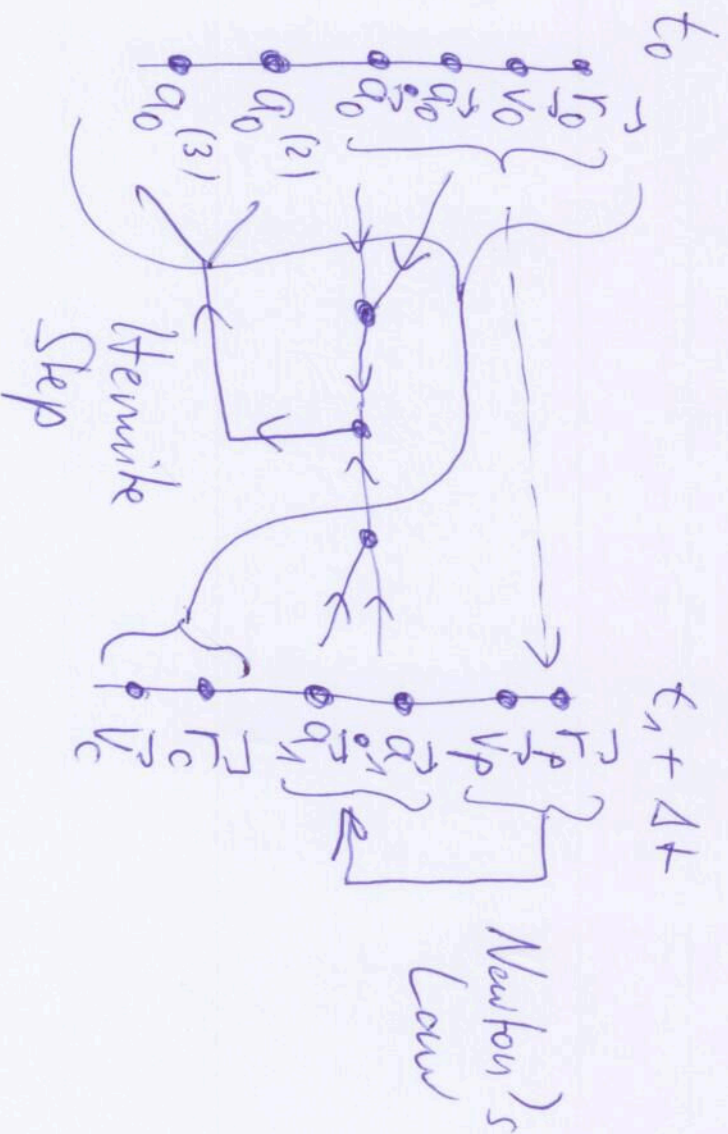 t₀
t₁ + Δt
r⃗₀
v⃗₀
a⃗₀
ȧ⃗₀
a₀⁽²⁾
a₀⁽³⁾
Hermite
Step
r⃗ₚ
v⃗ₚ
a⃗₁
ȧ⃗₁
r⃗c
v⃗c
Newton's
Law